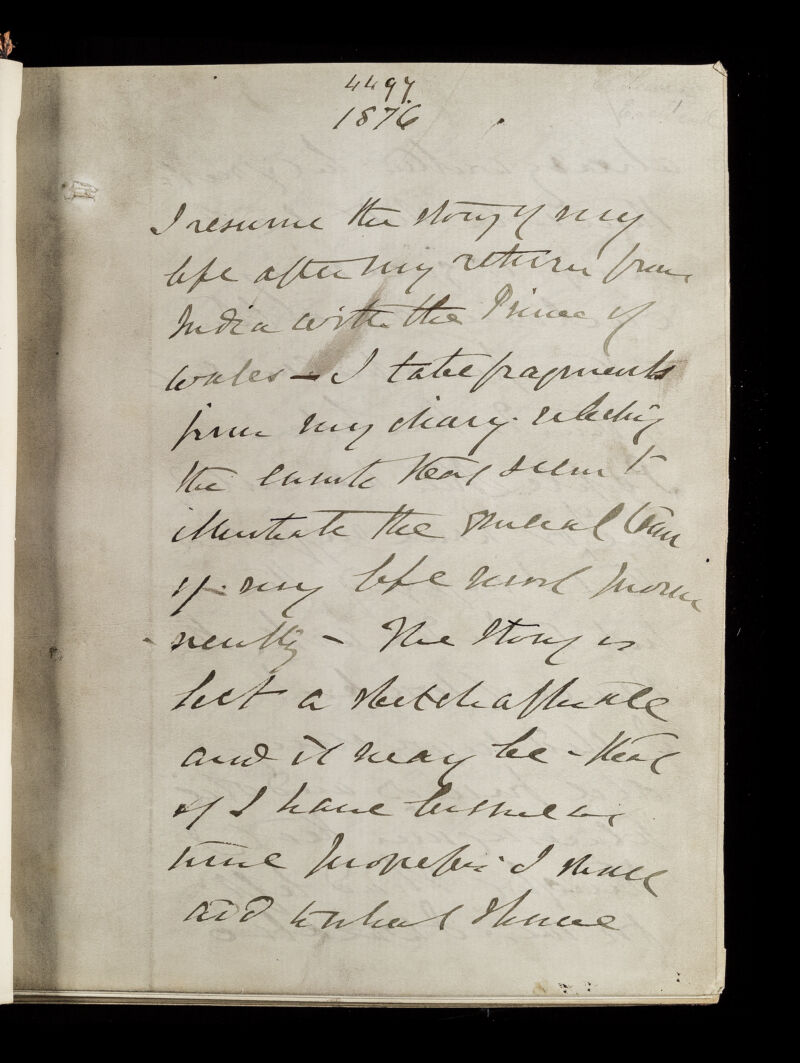 4497.
1876
I resume the story of my
life after my return from
India with the Prince of
Wales – I take fragments
from my diary selecting
the events that seem to
illustrate the general
of my life most promi
nently – The story is
but a sketch after all
and it may be that
if I have
time I shall
add to what